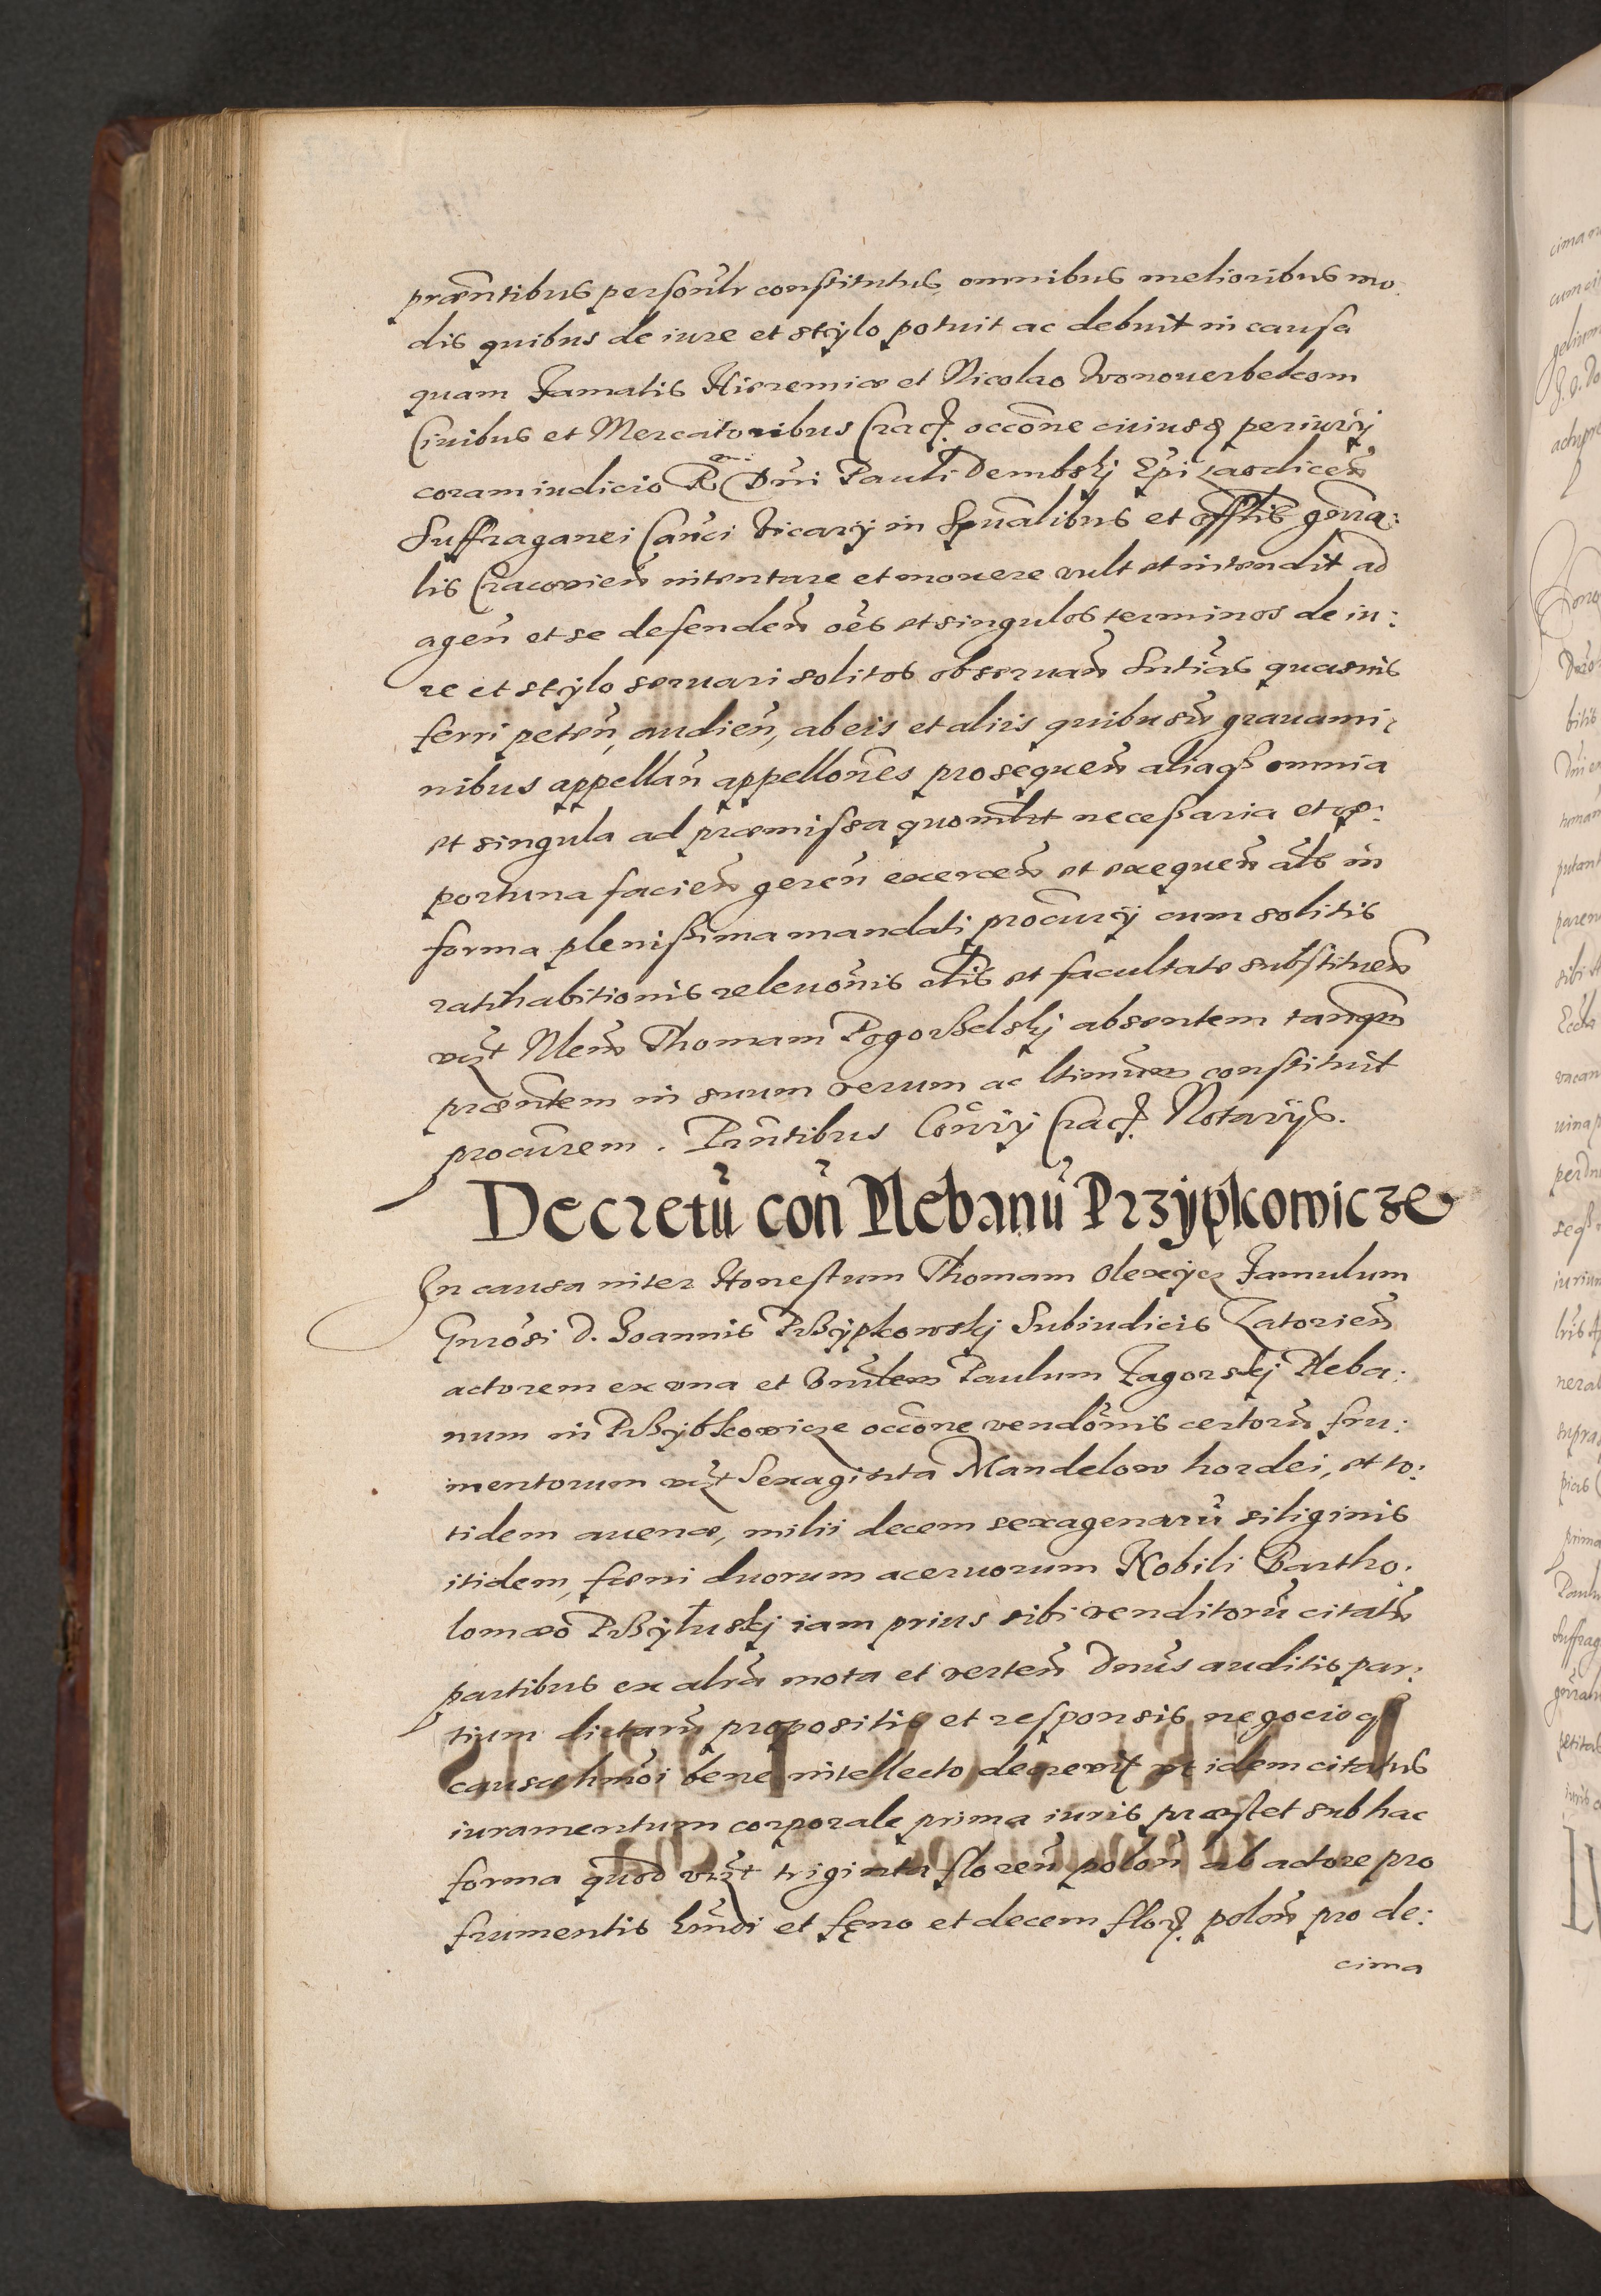 præntibus personlr constitutus, omnibus melioribus mo:
dis quibus de iure et stylo potuit ac debuit in causa
quam Famatis Hieremiæ et Nicolao
Civibus et Mercatoribus Crac. occone cuiusd periurij
coram iudicio R Dni Pauli Dembskj Epi Laodicen
Suffraganei Canci Vicarij in Spualibus et offtis gnra:
lis Cracovien intentare et mouere vult et intendit ad
agen et se defenden oes et singulos terminos de iu:
re et stylo seruari solitos obseruan Sntias quasuis
ferri peten, audien, ab eis et aliis quibusuis grauami:
nibus appellan appellones prosequen aliaq omnia
et singula ad præmissa quomlt necessaria et op:
portuna facien geren exercen et exequen als in
forma plenissima mandati procurij cum solitis
ratihabitionis releuonis clis et facultate substituen
vizt Nlem Thomam Pogorselskj absentem tanqm
præntem in suum verum ac ltimum constituit
procurem. Prntibus Convij Crac. Notarijs.
Decretu con Plebanu Przypkowicze
In causa inter Honestum Thomam Olexycz Famulum
Gnrosi D. Joannis Prsypkowskj Subiudicis Zatorien
actorem ex vna et Vnrlem Paulum Zagorskj Pleba:
num in Prsybkowicze occone vendonis certoru fru:
mentorum vizt Sexaginta Mandelow hordei, et to:
tidem auenæ, milii decem sexagenaru siliginis
itidem, fœni duorum aceruorum Nobili Bartho:
lomæo Prsyłuskj iam prius sibi venditoru citatu
partibus ex altra mota et verten Dnus auditis par:
tium dictaru propositis et responsis negocioq
causæ hmoi bene intellecto decreuit vt idem citatus
iuramentum corporale prima iuris præstet sub hac
forma quod vizt triginta floren polon ab actore pro
frumentis hmoi et fęno et decem flor. polon pro de:
cima